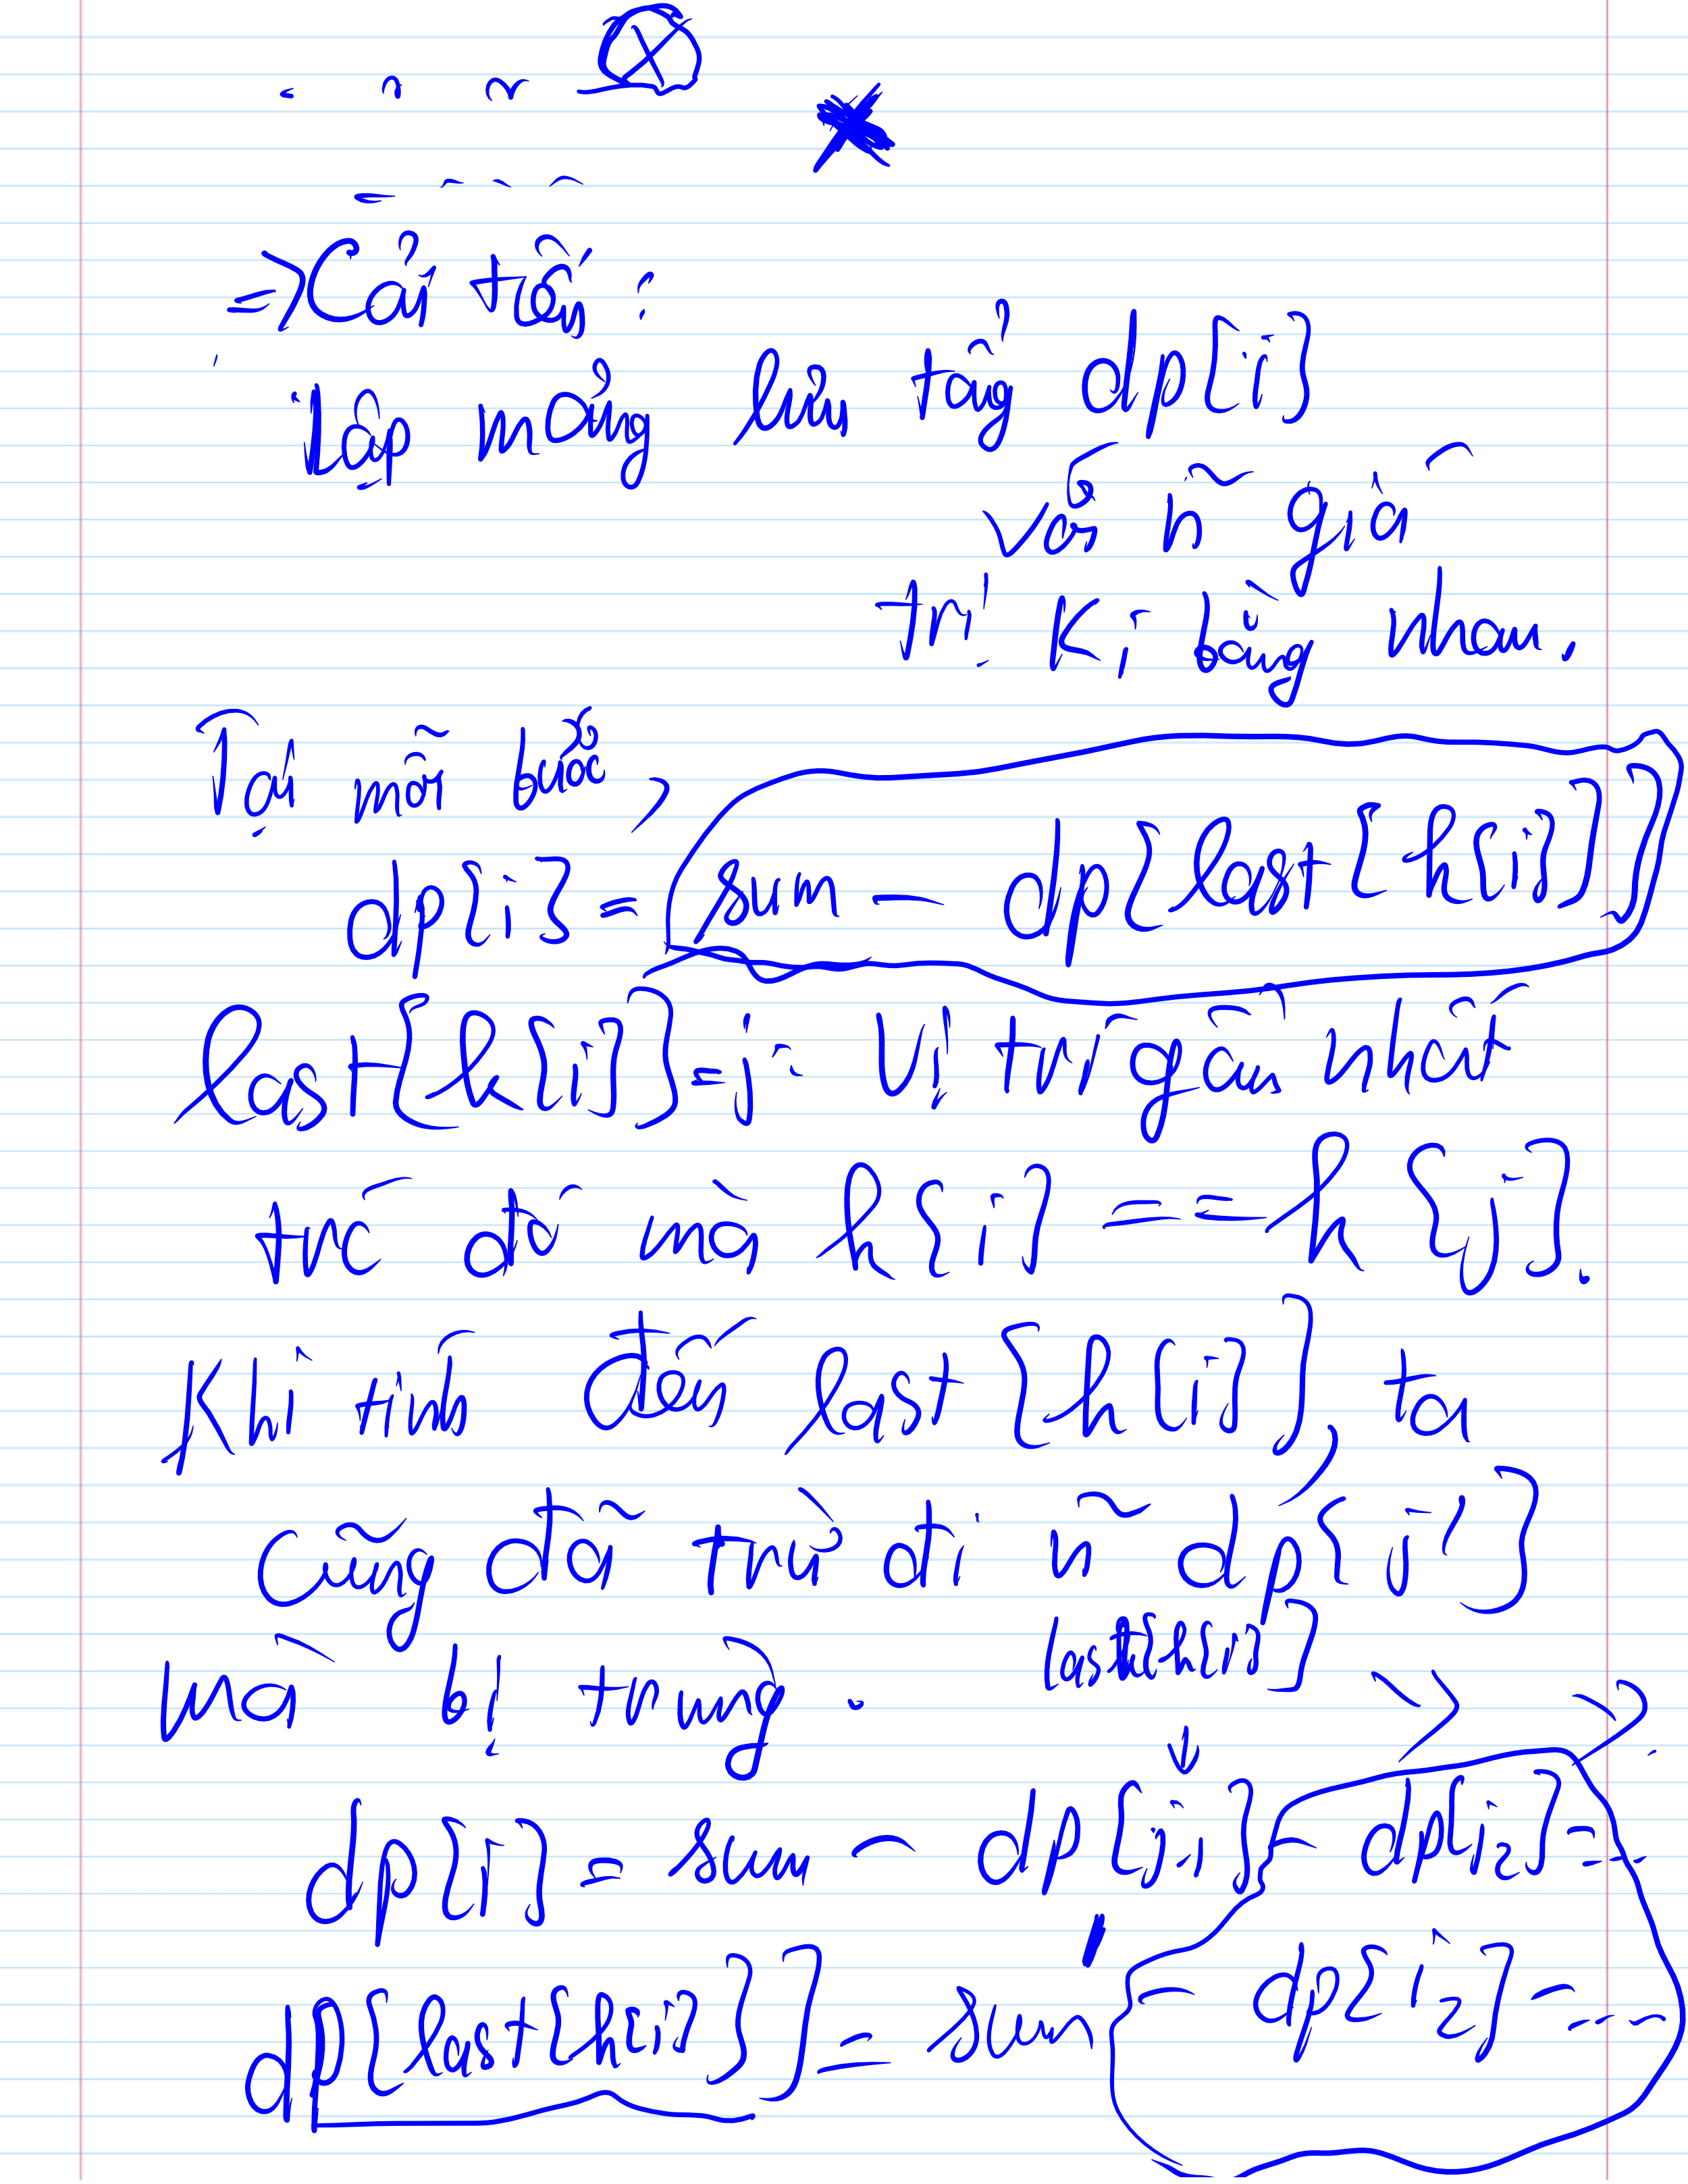 => Cải tiến :
Lập mảng lưu tổng dp[i]
với ~ giá
trị Ki bằng nhau.
Tại mỗi bước,
dp[i] = sum - dp[last[h[i]]]
last[h[i]] = j : Vị trí gần nhất
trước đó mà h[i] == h[j].
Khi tính đến last[h[i]], ta
cũng đã trừ đi ~ dp[i]
last[h[i]]
mà bị trùng.
dp[i] = sum - dp[j1] - dp[j2] - ...
dp[last[h[i]]] = sum - dp[j2] - ...